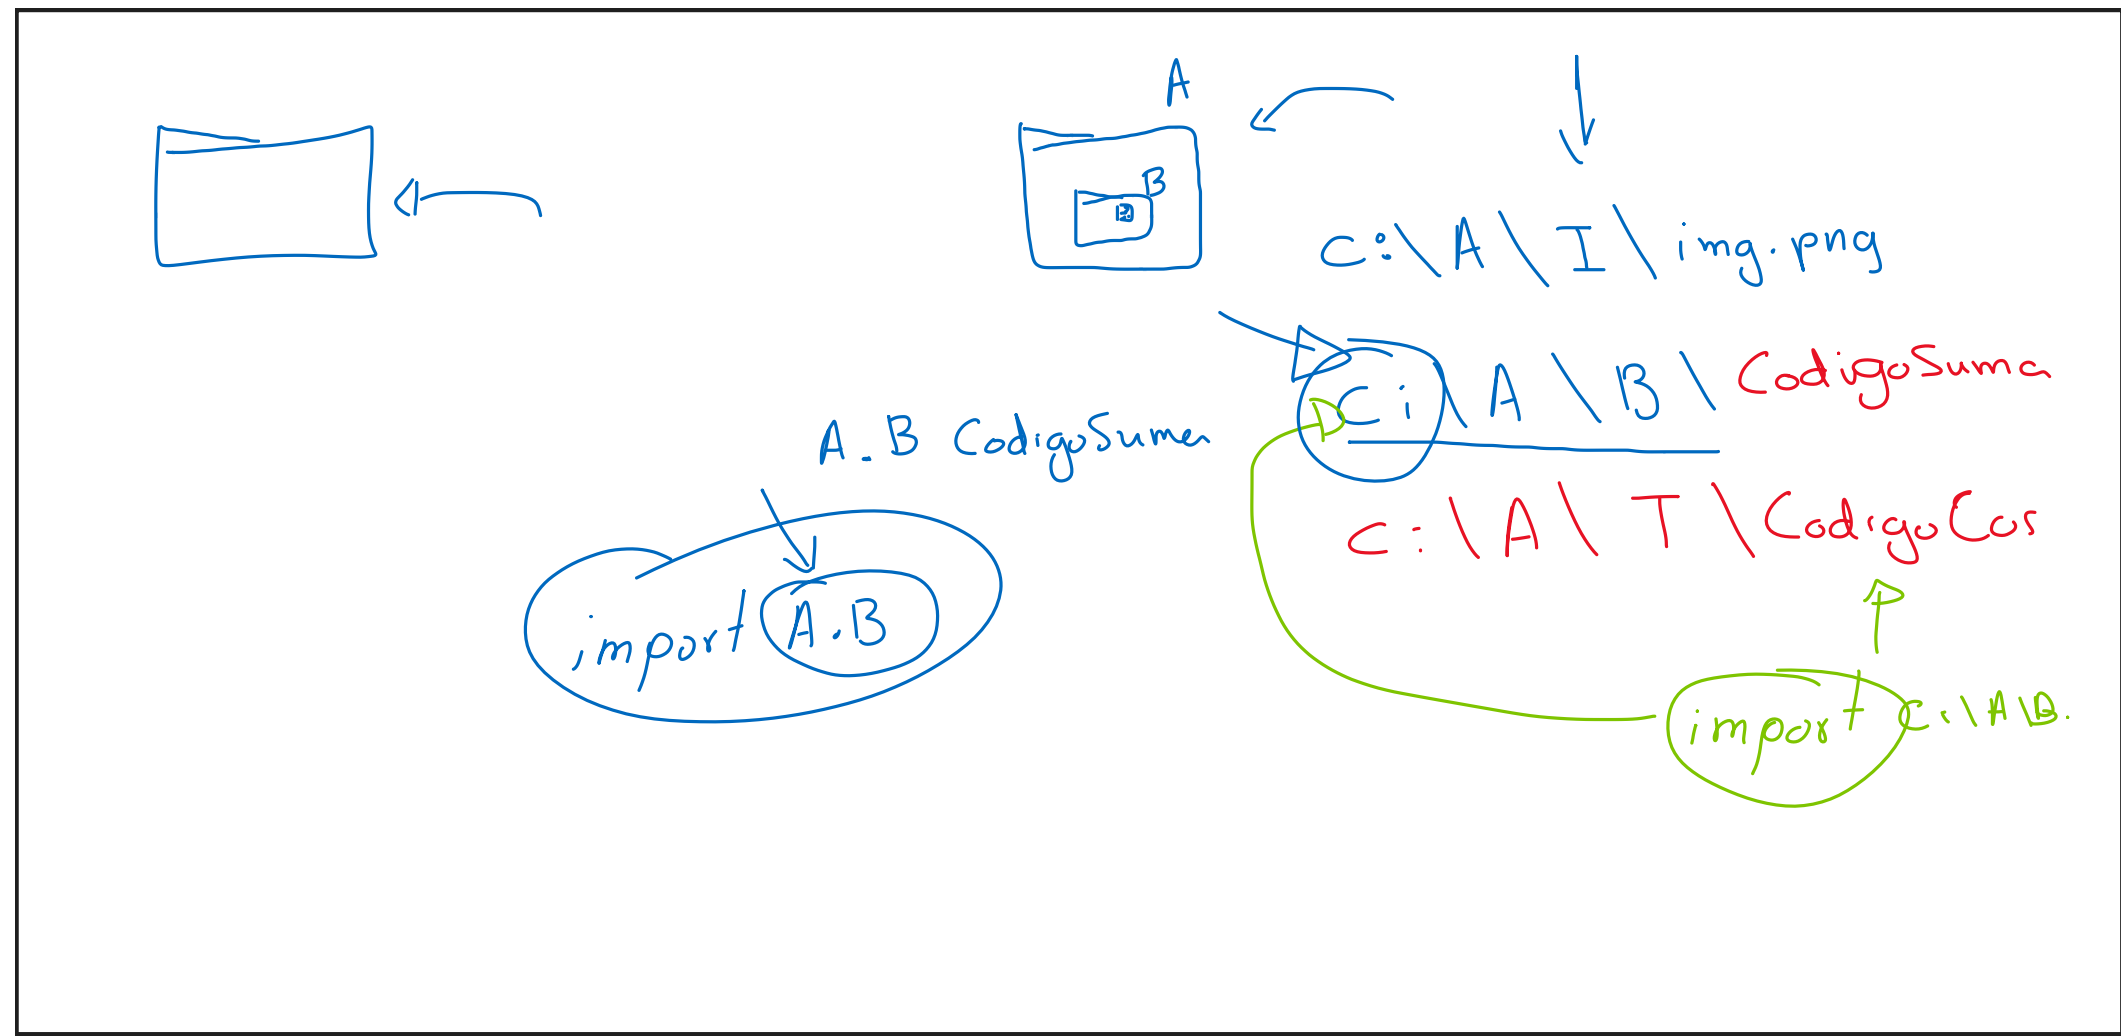 A
B
C:\A\I\img.png
Ci\A\B\CodigoSuma
A.B CodigoSuma
C:\A\T\CodigoCos
import A.B
import C:\A\B.